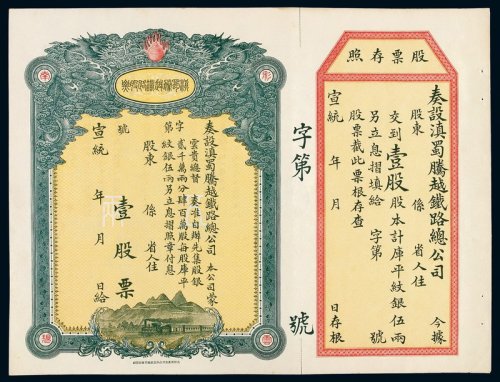 股票存照
奏設滇蜀騰越鐵路總公司 今據
股東 係 省人住
交到壹股股本計庫平紋銀伍兩
另立息摺填給 字第 號
股票截此票根存查
宣統 年 月 日存根
字第 號
彩
奏設滇蜀騰越鐵路總公司 本公司蒙
雲貴總督 奏准自辦先集股銀
貳千萬兩分肆百萬股每股庫平
紋銀伍兩另立息摺照章付息
字第 號
股東 係 省人住
壹股票
宣統 年 月 日給